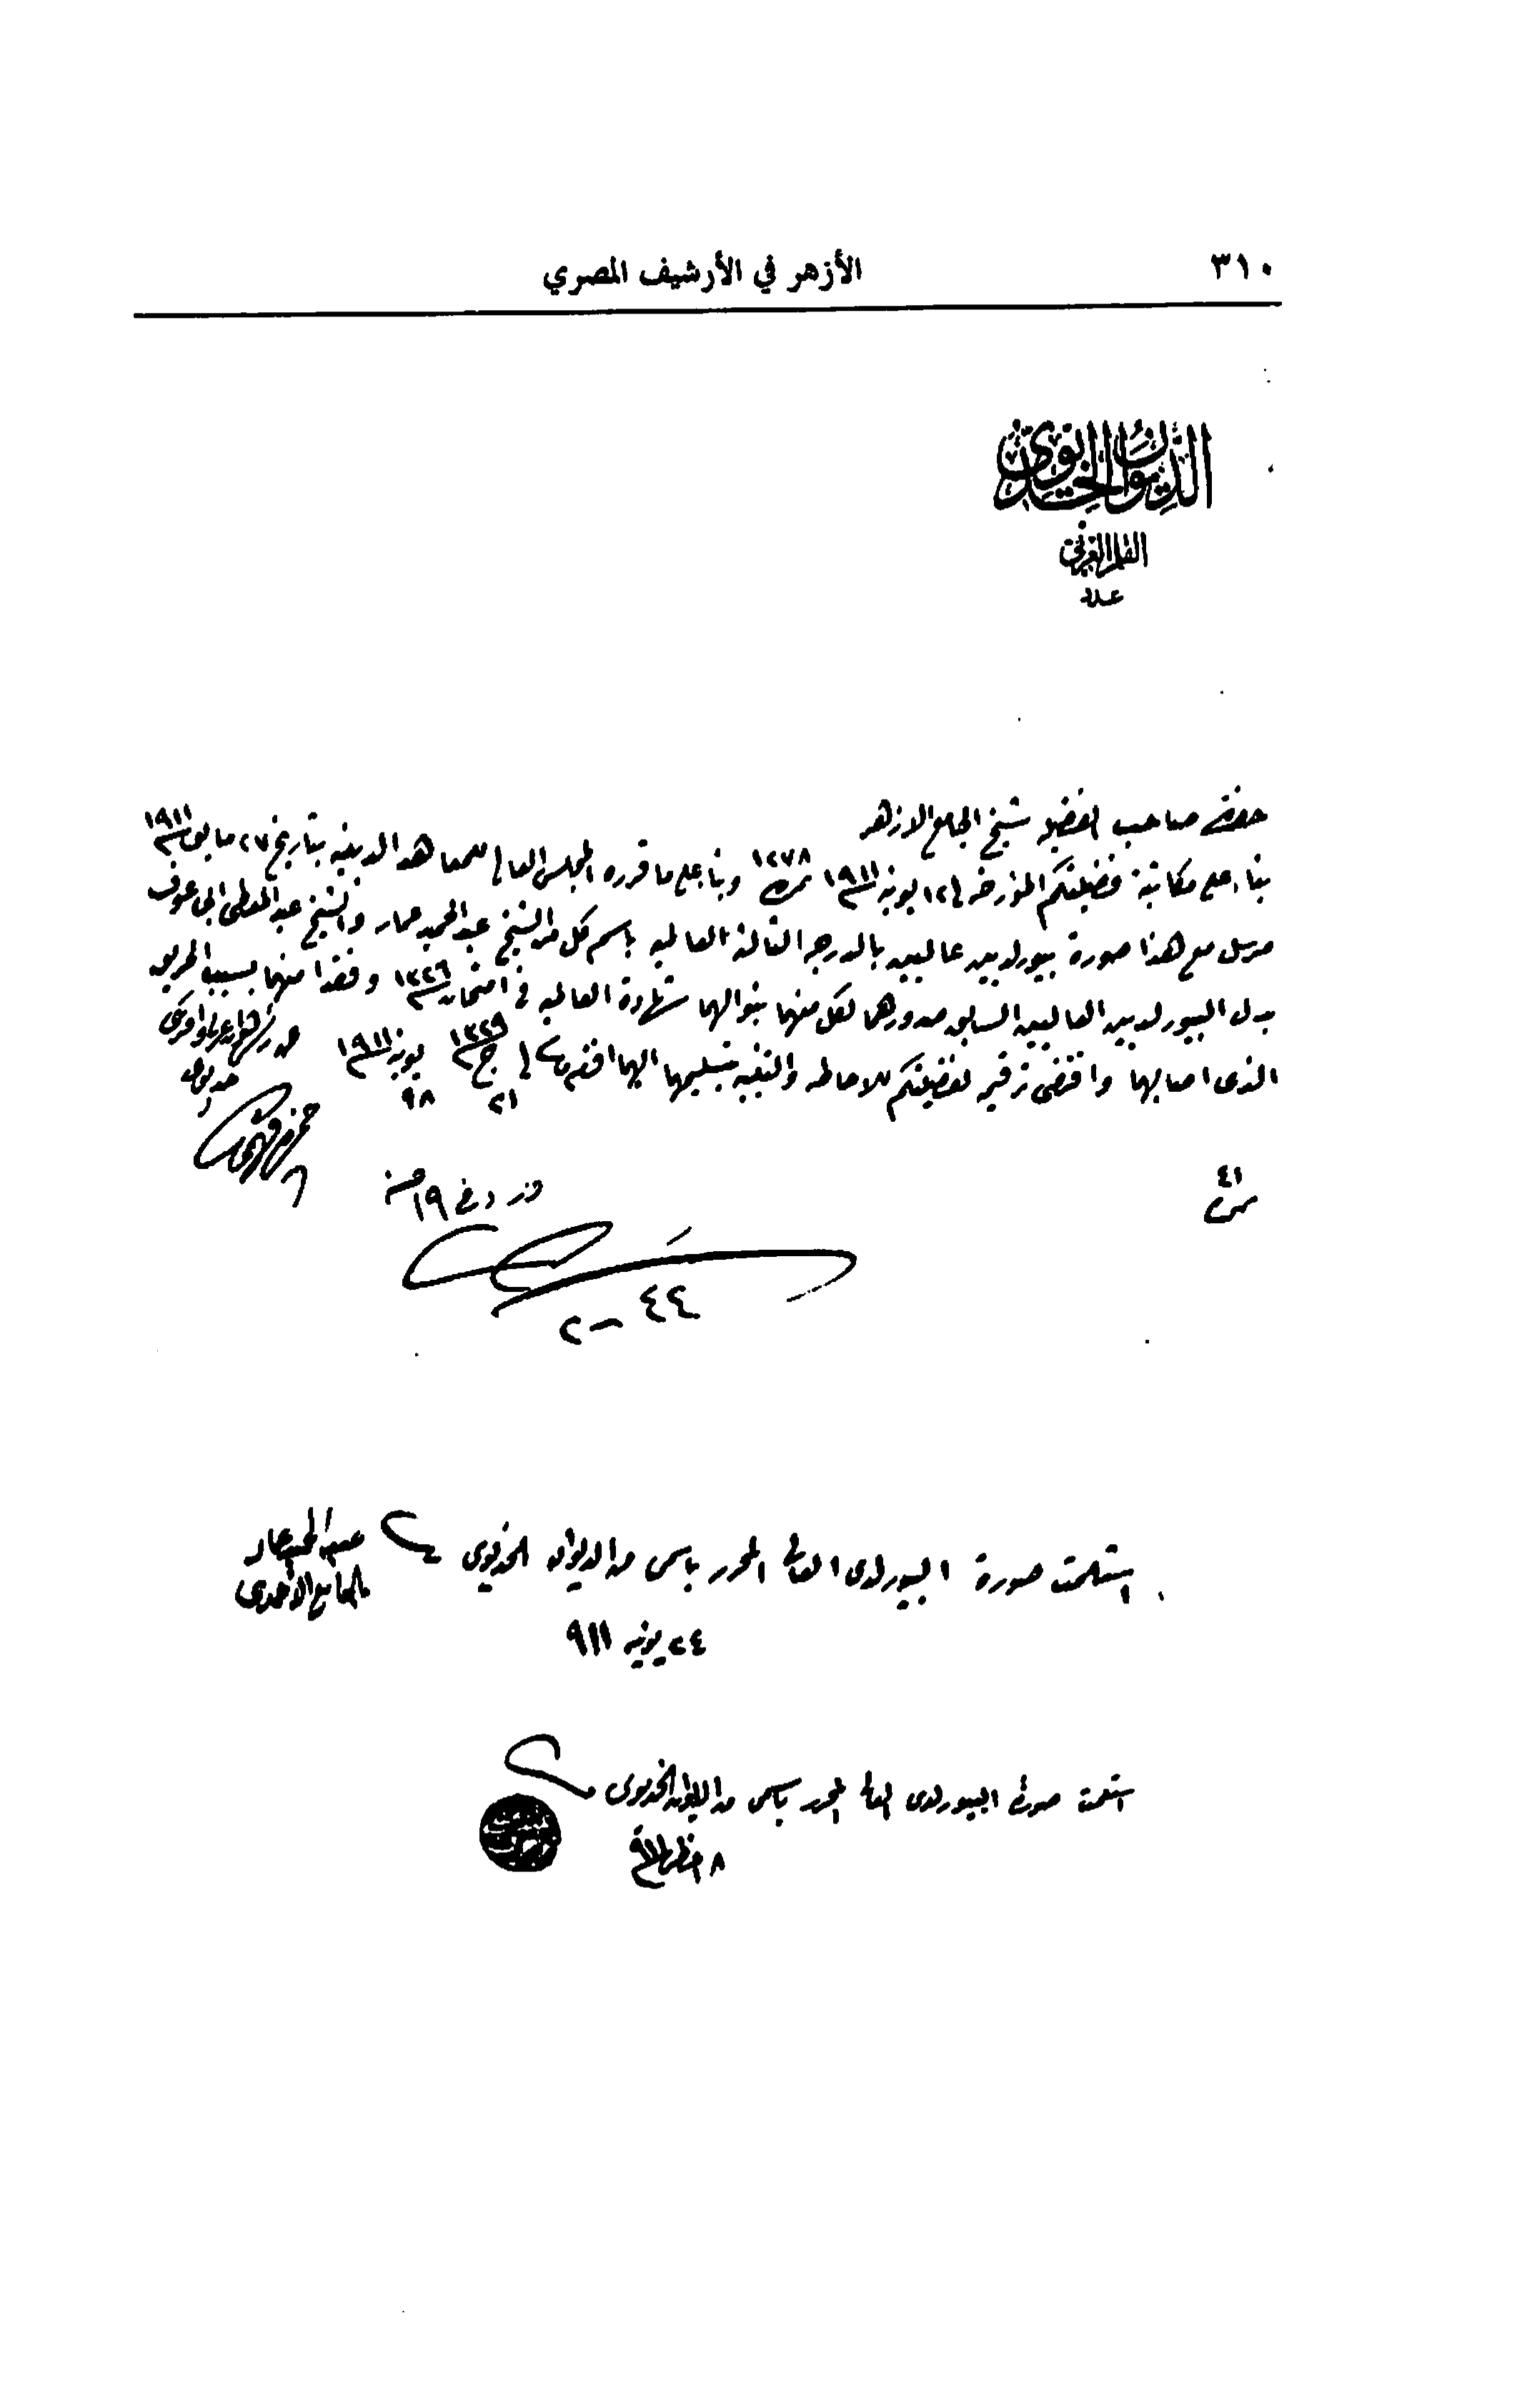 ٣١٠
الأزهر في الأرشيف المصري
الديوان الخديوي
القلم العربي
عدد
حضرة صاحب الفضيلة شيخ الجامع الازهر
بناء على مكاتبة فضيلتكم المؤرخة في ١٢ يونيه ١٩١١ نمرة ١٢٧٨ وبناء على ما قرره المجلس العالي للمعاهد الدينية بتاريخ ٢٧ مايو ١٩١١
مرسل مع هذا صورة بيورلديين عاليين بالدرجة الثالثة العالمية باسم كل من الشيخ عبد الحميد عمار والشيخ عبد المعطي ابي عوف
بدل البيورلديين العاليين السابق صدورهما لكل منهما بنوالهما شهادة العالمية في امتحان ١٣٢٦ وفقدا منهما بسبب الحريق
الذى اصابهما واقتضى ترقيمه لفضيلتكم للاحاطه والتنبيه بتسليمهما اليهما افندم في ٢١ ج ١٣٢٩ ٩٨ يونيه ١٩١١
خديوي
٤١
١٩
٤٤ – ٢
استلمت صورة البيورلدى العالي المحرر باسمى من الديوان الخديوى
عبد الحميد عمار
بالجامع الاحمدى
٢٤ يونيه ٩١١
استلمت صورة البيورلدى العالي المحرر باسمى من الديوان الخديوى